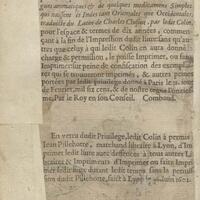 gues aromatiques & de quelques medicamens Simples
qui naissent és Indes tant Orientales que Occidentales,
traduitte du Latin de Charles Clusius, par ledit Colin,
pour l'espace & termes de dix annees, commen-
çant à la fin de l'impression dudit liure sans qu'au-
tres que celuy à qui ledit Colin en aura donné
charge & permission, le puisse Imprimer, ou faire
Imprimer sur peine de confiscation des exemplai-
res qui se trouueront imprimés, & autres peines
portees par ledit priuilege donné à Paris le
de Feurier, mil six cens, & de nostre regne
me. Par le Roy en son Conseil. Combaud.
En vertu dudit Priuilege, ledit Colin a permis
Iean Pillehotte, marchand libraire à Lyon, d'Im-
primer ledit liure auec deffences à tous autres Li-
braires & Imprimeurs d'Imprimer ou faire Impri-
mer ledit liure durant ledit temps sans la permission
dudit Pillehotte, faict à Lyon 1602.